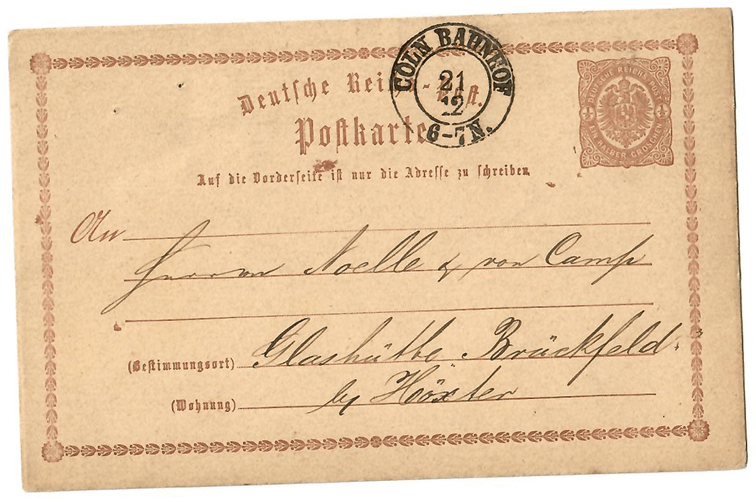 Deutsche Reichs-Post.
CÖLN BAHNHOF
21
12
6-7N.
Postkarte
DEUTSCHE REICHS-POST
½ ½
EIN HALBER GROSCHEN
Auf die Vorderseite ist nur die Adresse zu schreiben
An
Herren Noelle & von Camp
(Bestimmungsort) Glashütte Brückfeld
(Wohnung) by Höxter